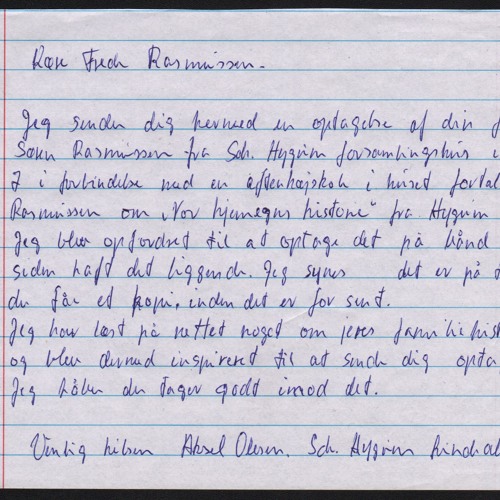 Kære Fredr Rasmussen.
Jeg sender dig hermed en optagelse af din f
Søren Rasmussen fra Sdr. Hygum forsamlingshus
I i forbindelse med en aftenhøjskole i huset fortal
Rasmussen om "Vor hjemegns historie" fra Hygum
Jeg blev opfordret til at optage det på bånd
siden haft det liggende. Jeg synes det er på t
du får et kopi, inden det er for sent.
Jeg har læst på nettet noget om jeres familiehist
og blev dermed inspireret til at sende dig opta
Jeg håber du tager godt imod det.
Venlig hilsen Aksel Olesen. Sdr. Hygum